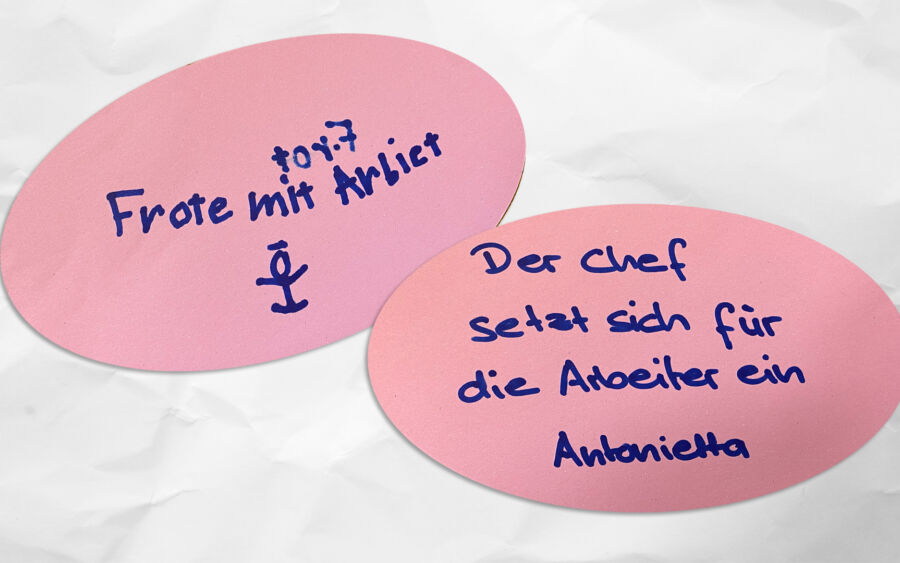 Frote mit Arbiet
Der Chef
setzt sich für
die Arbeiter ein
Antonietta